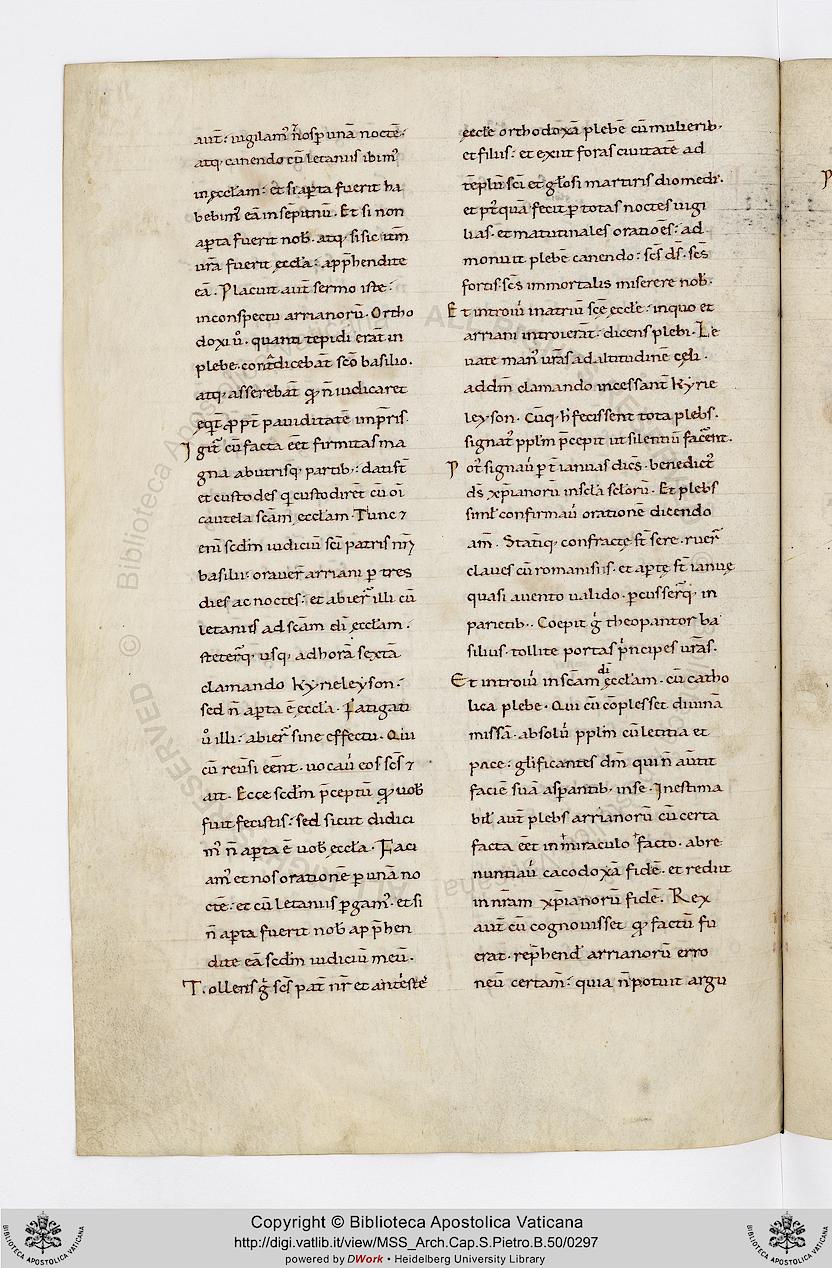 aut̄: uigilam᷒ n̄os p unā noctē:
atq; canendo cū letaniis ibim᷒
in ęccl̄am: et si ap̱ta fuerit ha
bebim᷒ eā insēpitnū. Et si non
ap̱ta fuerit nob̄. atq; si sic itm̄
ur̄a fuerit eccl̄a: app̄hendite
eā. Placuit aut̄ sermo iste:
inconspectu arrianorū. Ortho
doxi ů. quanti tepidi erāt in
plebe. cont̄dicebāt sc̄o basilio.
atq; asserebāt qd̄ n̄ iudicaret
eq̄t ꝓpt̄ pauiditatē imp̄ris.
Igit᷒ cū facta eēt firmitas ma
gna abutrisq; partib;: dati st̄
et custodes q custodirēt cū oī
cautela sc̄am ęccl̄am. Tunc ⁊
eni sc̄dm iudiciū sc̄i patris nr̄i
basilii: orauer̄ arriani p tres
dies ac noctes: et abier̄ illi cū
letaniis ad sc̄am dī ęccl̄am:
steter̄q; usq; ad horā sextā
clamando kyrieleyson:
sed n̄ ap̱ta ē eccl̄a. Fatigati
ů illi: abier̄ sine effectu. Qui
cū reu̱si eēnt. uocauı̄ eos sc̄s ⁊
ait. Ecce sc̄dm p̄ceptū qd̄ uob̄
fuit fecistis: sed sicut didici
m᷒ n̄ ap̱ta ē uob̄ eccl̄a. Faci
am᷒ et nos orationē p unā no
ctē: et cū letaniis p̱gam᷒. et si
n̄ ap̱ta fuerit nob̄ app̄hen
dite eā sc̄dm iudiciū meū.
Tollens g̊ sc̄s pat̄ nr̄ et antēste᷒
eccl̄e orthodoxā plebē cū mulierib;
et filiis: et exiit foras ciuitatē ad
tēplū sc̄i et gl̄osi martiris diomedi᷒.
et pt᷒quā fecit p totas noctes uigi
lias. et matutinales oratiōes: ad
monuit plebē canendo: sc̄s ds̄. sc̄s
fortis. sc̄s immortalis miserere nob̄.
Et introiuı̄ in atriū sc̄ę eccl̄e: in quo et
arriani introierāt. dicens plebi. Le
uate man᷒ ur̄as ad altitudinē cęli.
ad dn̄m clamando incessant̄ kyrie
leyson. Cūq; h̄ fecissent tota plebs.
signat᷒ ppl̄m p̄cepit ut silentiū facēent.
Pot᷒ signauı̄ p t̄ ianuas dicēs. benedict᷒
ds̄ xp̄ianorū in sc̄la sc̄lorū. Et plebs
simł confirmauı̄ orationē dicendo
am̄. Statiq; confractę st̄ serę. ruer̄
claues cū romanisiis. et ap̱tę st̄ ianuę
quasi auento ualido. p̱cusser̄q; in
parietib;. Coepit g̊ theopantor ba
silius. tollite portas p̄ncipes ur̄as.
Et introiuı̄ in sc̄am dī ęccl̄am. cū catho
lica plebe. Qui cū cōplesset diuinā
missā. absoluı̄ ppl̄m cū letitia et
pace: gl̄ificantes dm̄ qui n̄ auertit
faciē suā asp̱antib; in se. Inestima
bił aut̄ plebs arrianorū cū certa
facta eēt in miraculo facto. abre
nuntiauı̄ cacodoxā fidē. et rediit
in nr̄am xp̄ianorū fidē. Rex
aut̄ cū cognouisset qd̄ factū fu
erat. rep̄hendı̄ arrianorū erro
neū certam̄: quia n̄ potuit argu
Copyright © Biblioteca Apostolica Vaticana
http://digi.vatlib.it/view/MSS_Arch.Cap.S.Pietro.B.50/0297
powered by DWork • Heidelberg University Library